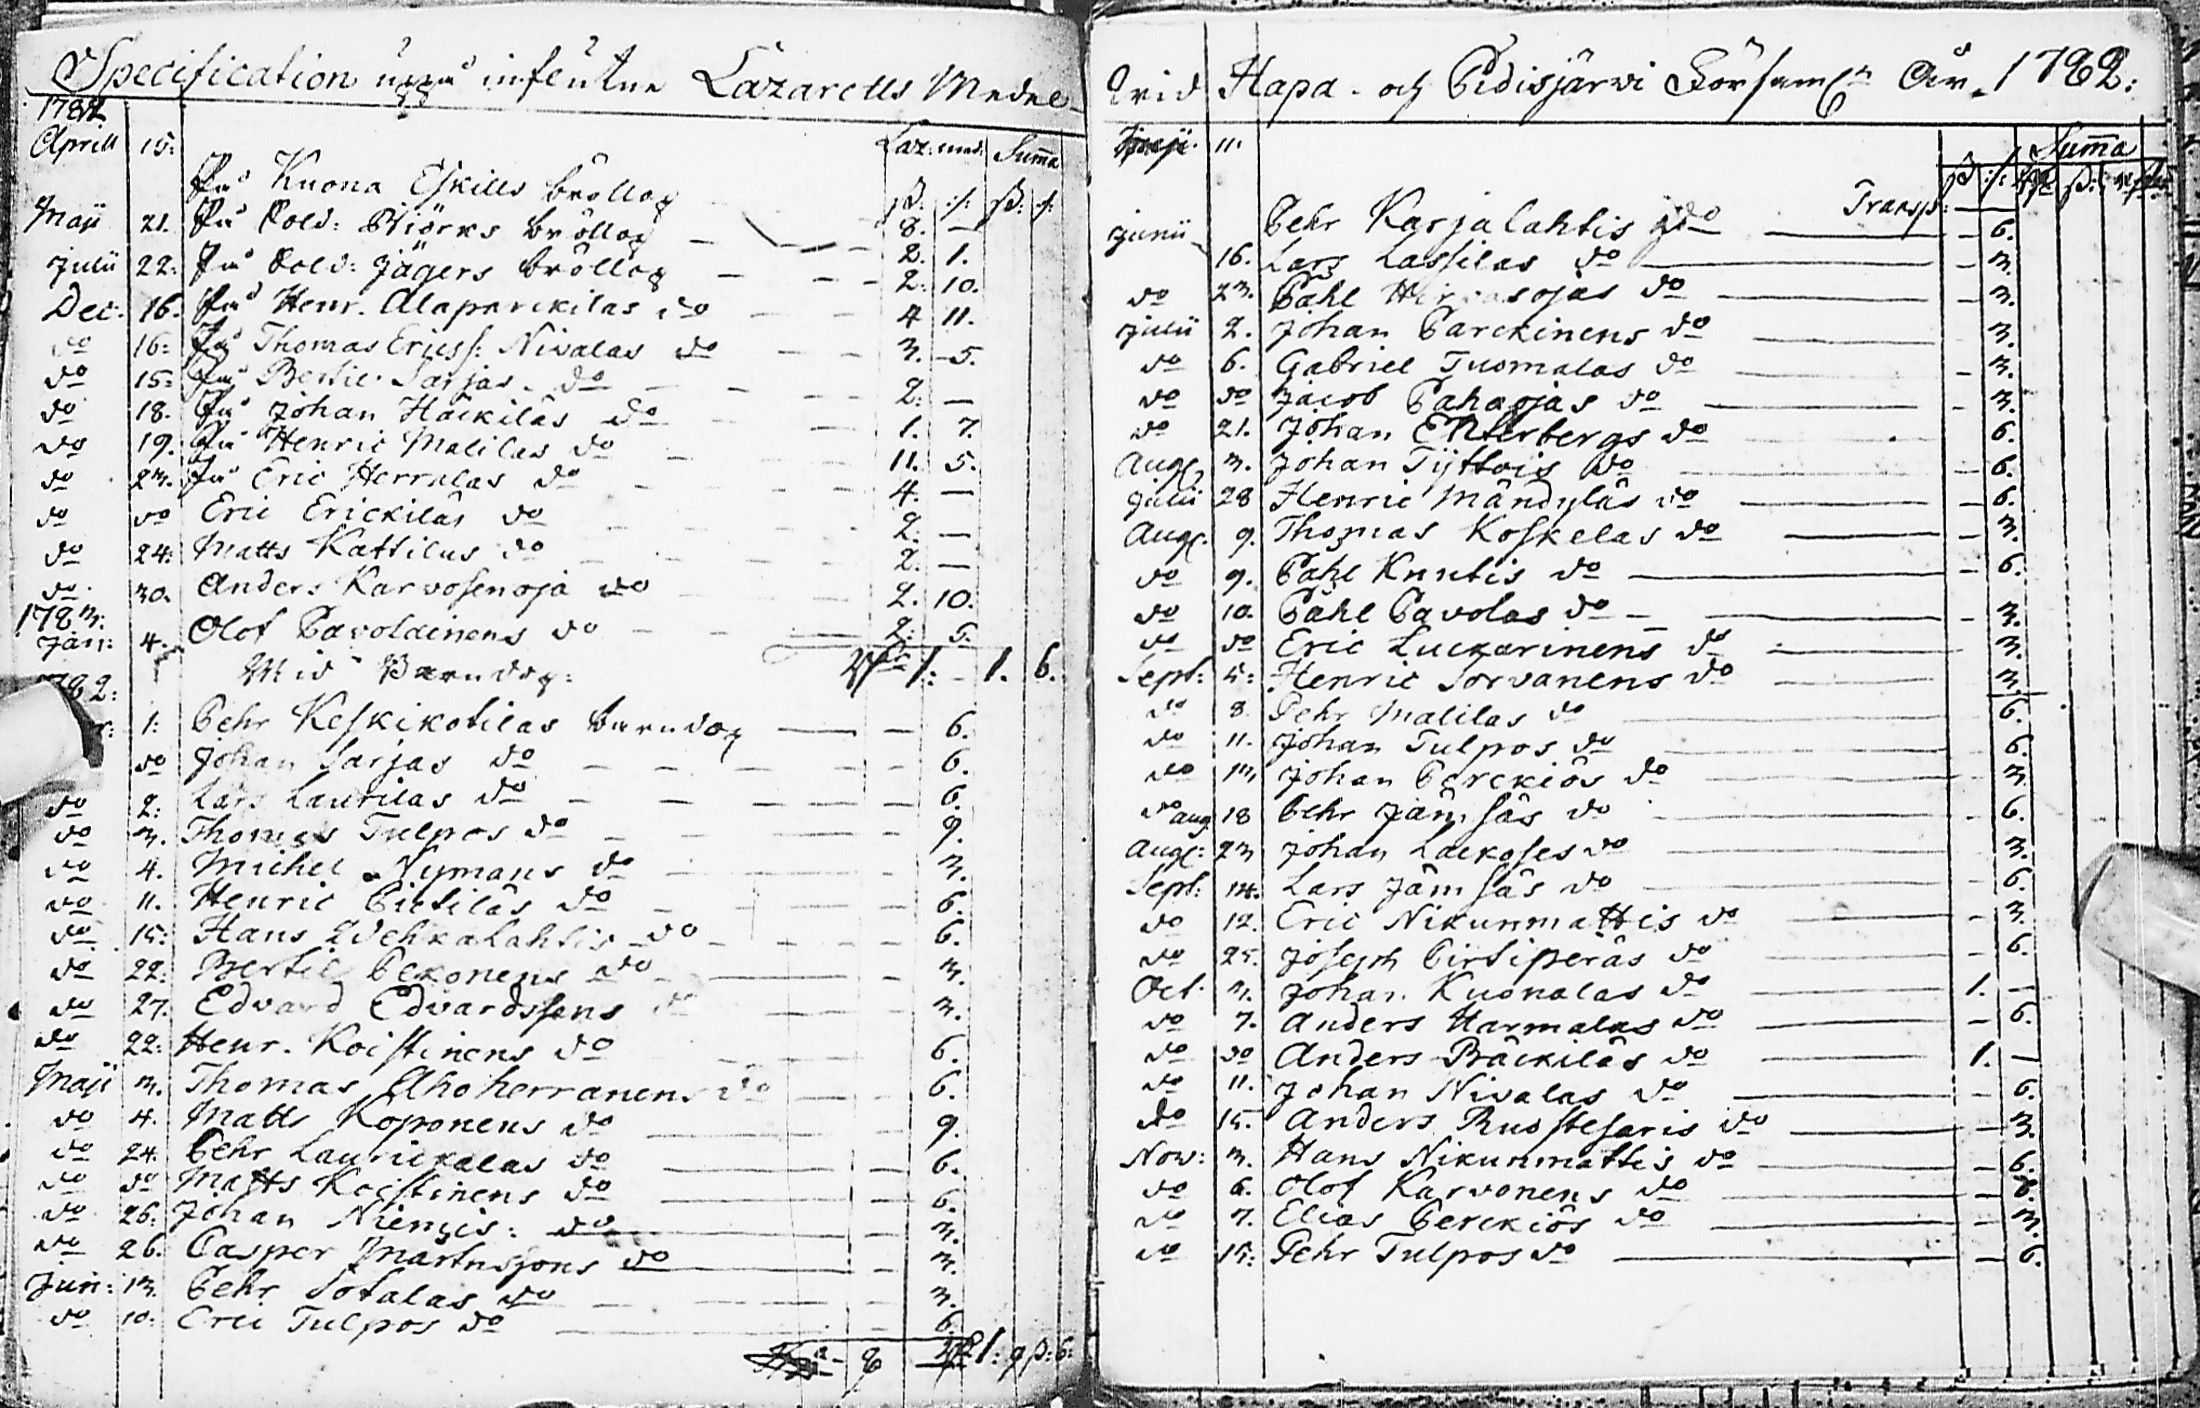 Specification uppå influtne Lazaretts Medel
1782
Aprill 15: På Kuona Eskills bröllop 8. —
Laz: med: Summa
Maji 21. På Sold: Biörks bröllop 2. 1.
Julii 22: På Sold: Jägers bröllop 2. 10.
Dec: 16. På Henr. Alaparckilas do 4 11.
do 16: På Thomas Ericss: Nivalas do 3. 5.
do 15: På Bertil Sarjas do 2. —
do 18. På Johan Häickiläs do 1. 7.
do 19. På Henric Malilas do 11. 5.
do 23. På Eric Herralas do 4. —
do do Eric Erickiläs do 2. —
do 24: Matts Kattilus do 2. —
do 30. Anders Karvosenoja do 2. 10.
1783:
Jan: 4. Olof Pavolainens do 2. 5.
Wid Barndop: 1: 1. 6.
1: Pehr Keskikotilas barndop — 6.
do Johan Sarjas do 6.
do 2: Lars Laurilas do 6.
do 3. Thomas Tulpos do 9.
do 4. Michel Nymans do 3.
do 11. Henric Pietiläs do 6.
do 15: Hans Wehkalahtis do 6.
do 22: Bertil Pekonens do 3.
do 27. Edvard Edvardssons do 3.
do 22: Henr. Koistinens do 6.
Maji 3. Thomas Ahoherranens do 6.
do 4. Matts Koponens do 9.
do 24. Pehr Laurickalas do 6.
do do Matts Koistinens do 6.
do 26: Johan Niemis: do 3.
do 26. Casper Martnsons do 3.
Jun: 13. Pehr Sotalas do 3.
do 10: Eric Tulpos do 6.
1: 9 ß: 6:
wid Hapa- och Pidisjärwi Församln År 1782:
Summa
Transp:
11. Pehr Karjalahtis do 6.
Junii 16. Lars Lassilas do 3.
do 23. Påhl Hirvasojas do 3.
Julii 2. Johan Parckinens do 3.
do 6. Gabriel Tuomalas do 3.
do do Jacob Pahaojas do 3.
do 21. Johan Ehlerbergs do 6.
Aug: 3. Johan Tyttois do 6.
Julii 28 Henric Mändyläs do 6.
Aug: 9. Thomas Koskelas do 3.
do 9. Påhl Knutis do 6.
do 10. Påhl Pavolas do 3.
do do Eric Luckarinens do 3.
Sept: 5: Henric Torvanens do 3.
do 8. Pehr Malilas do 6.
do 11. Johan Tulpos do 6.
do 13. Johan Perckiös do 3.
do aug 18 Pehr Jämsäs do 6.
Aug: 23 Johan Lackoses do 3.
Sept: 14. Lars Jämsäs do 6.
do 12. Eric Nikunmattis do 3.
do 25. Joseph Pirtiperäs do 6.
Oct. 3. Johan Kuonalas do 1. —
do 7. Anders Harmalas do — 6.
do do Anders Bräckiläs do 1. —
do 11. Johan Nivalas do 6.
do 15. Anders Ruostesaris do 3.
Nov: 3. Hans Nikunmattis do 6.
do 6. Olof Karvonens do 6.
do 7. Elias Perckiös do 3.
do 15: Pehr Tulpos do 6.